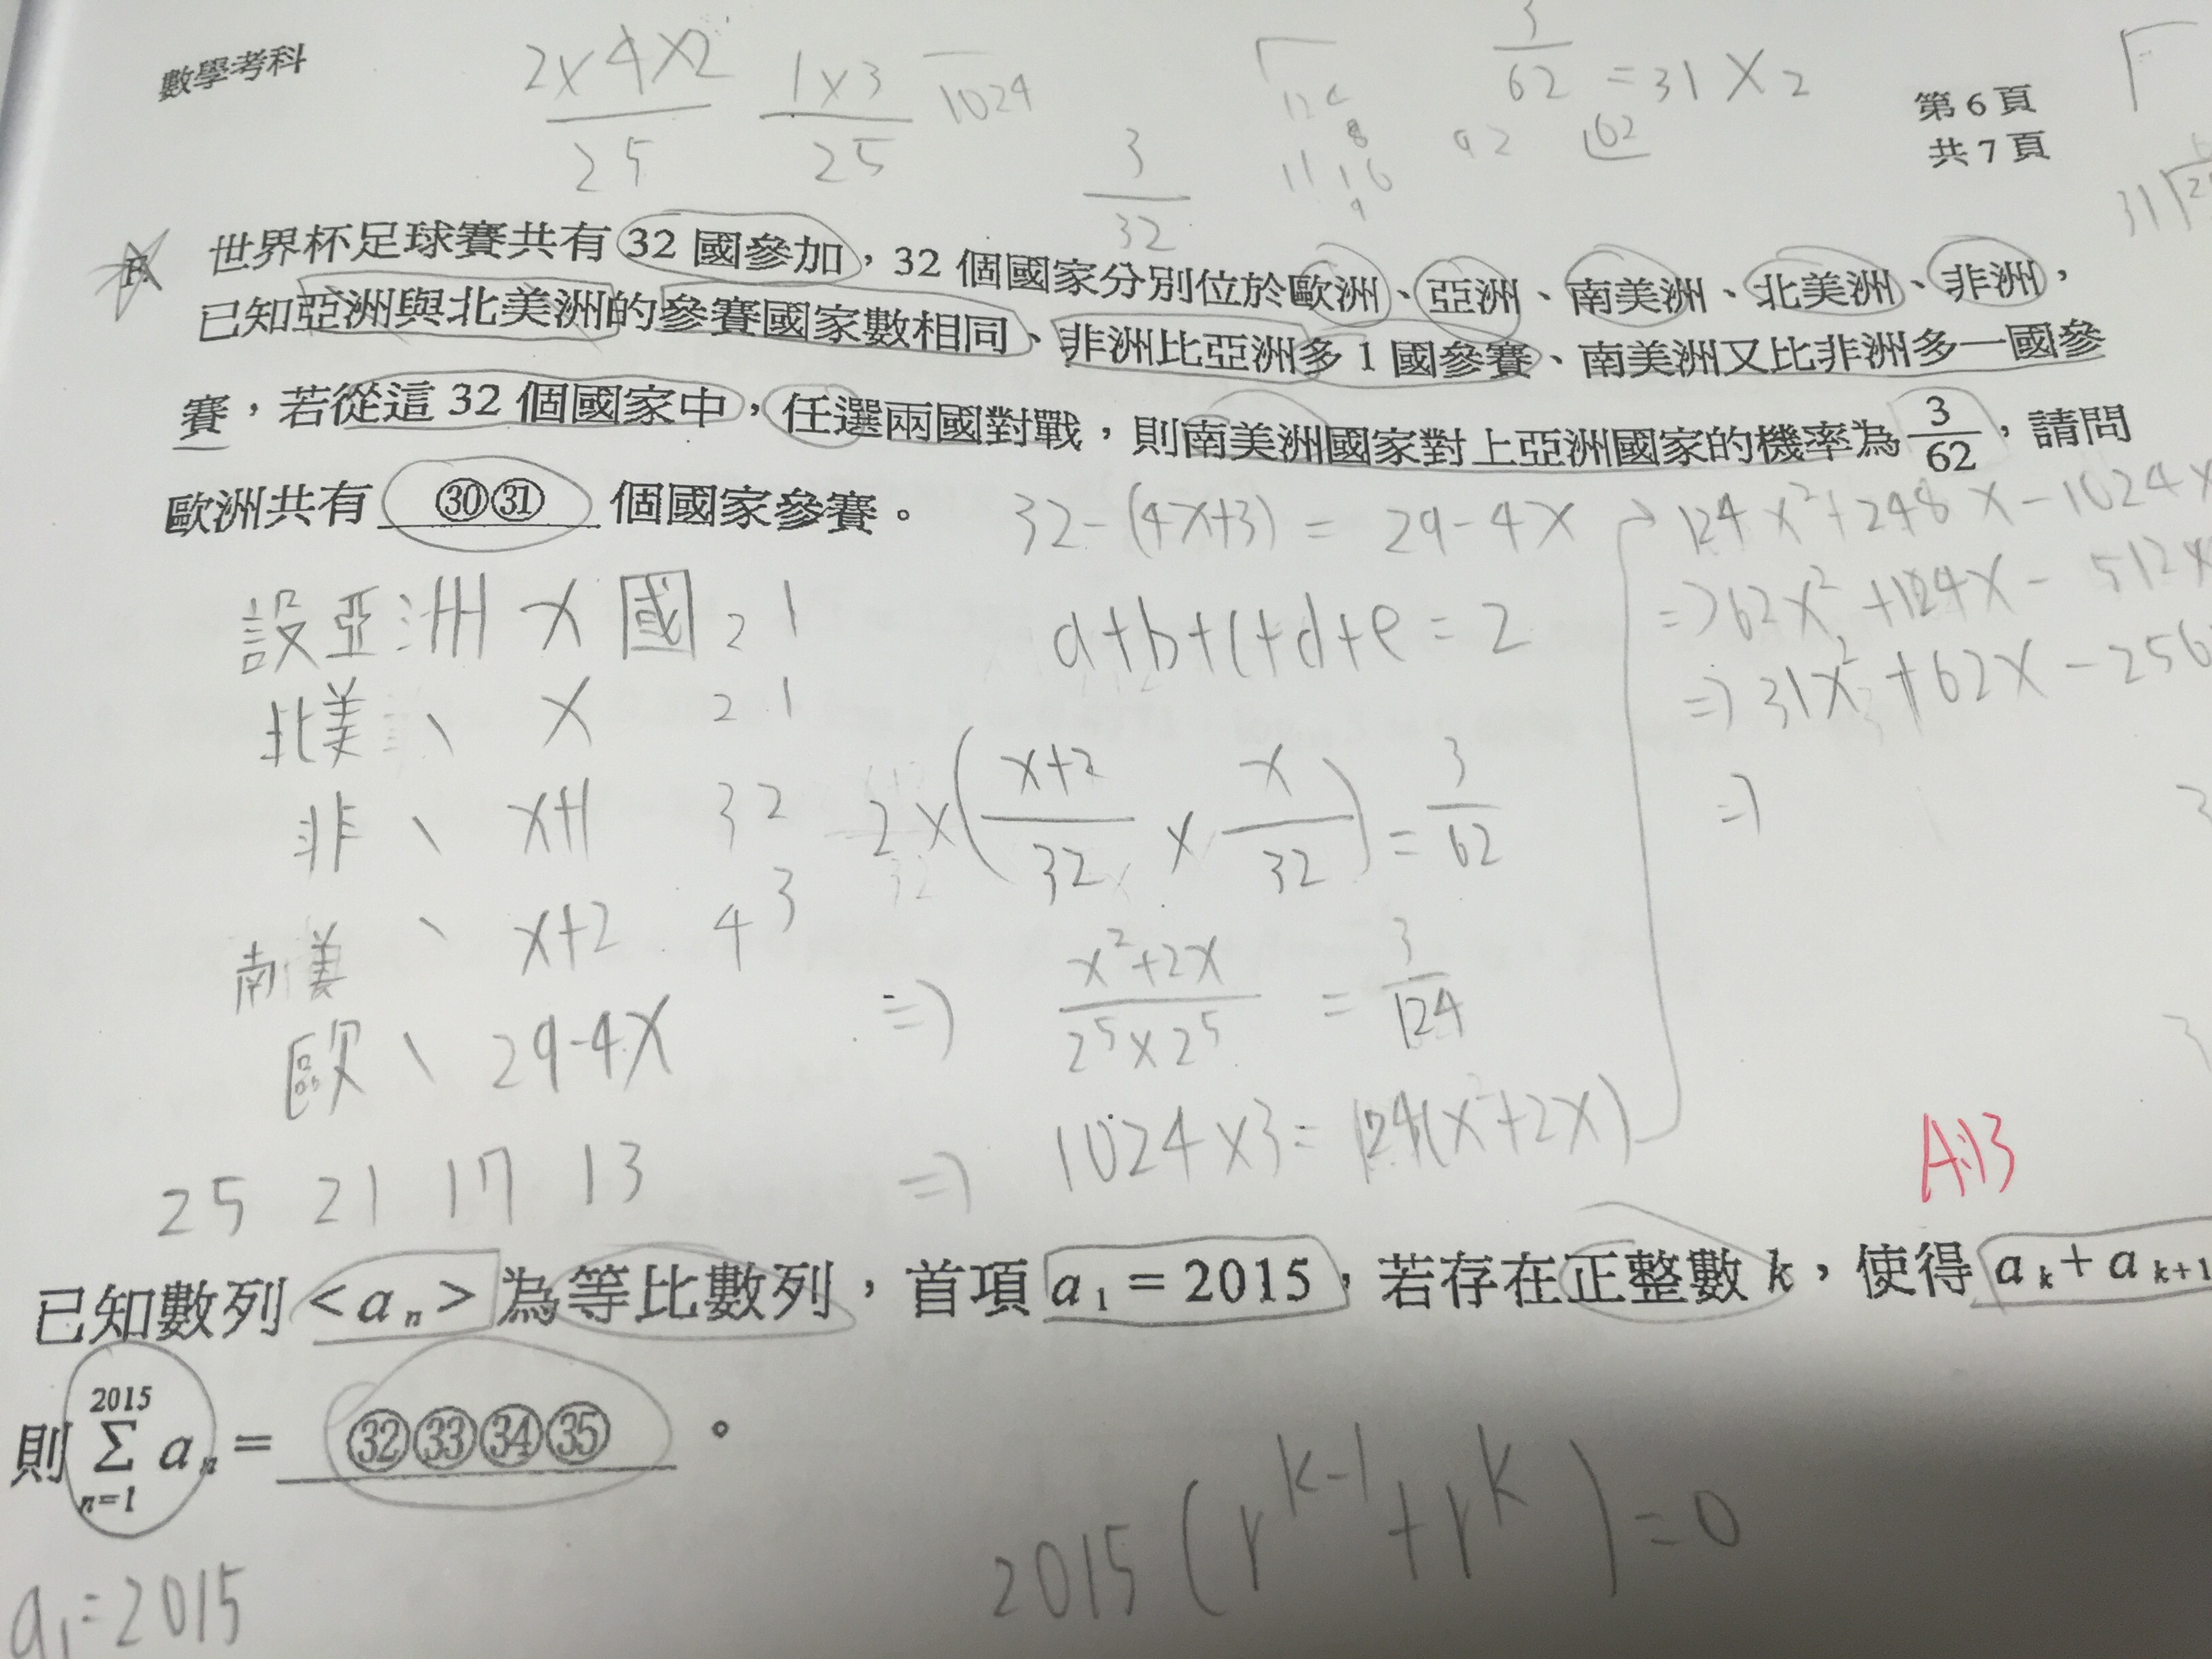 數學考科
第6頁
共7頁
2x4x2/25 1x3/25 1024
3/32
3/62 = 31 x 2
92 62
世界杯足球賽共有32國參加，32個國家分別位於歐洲、亞洲、南美洲、北美洲、非洲，
已知亞洲與北美洲的參賽國家數相同、非洲比亞洲多1國參賽、南美洲又比非洲多一國參
賽，若從這32個國家中，任選兩國對戰，則南美洲國家對上亞洲國家的機率為3/62，請問
歐洲共有㉚㉛個國家參賽。
32-(4x+3) = 29-4x
設亞洲 x 國 2 1
北美、 x 2 1
非、 x+1 3 2
南美、 x+2 4 3
歐、 29-4x
25 21 17 13
a+b+c+d+e=2
2x(x+2/32 x x/32) = 3/62
=> x²+2x/2⁵x2⁵ = 3/124
=> 1024x3=124(x²+2x)
124x²+248x-1024x
=>62x²+124x-512x
=>31x²+62x-256
=>
A:13
已知數列<aₙ>為等比數列，首項a₁=2015，若存在正整數k，使得aₖ+aₖ₊₁
則 2015 Σ n=1 aₙ=㉜㉝㉞㉟。
2015(r^k-1+r^k)=0
a₁=2015